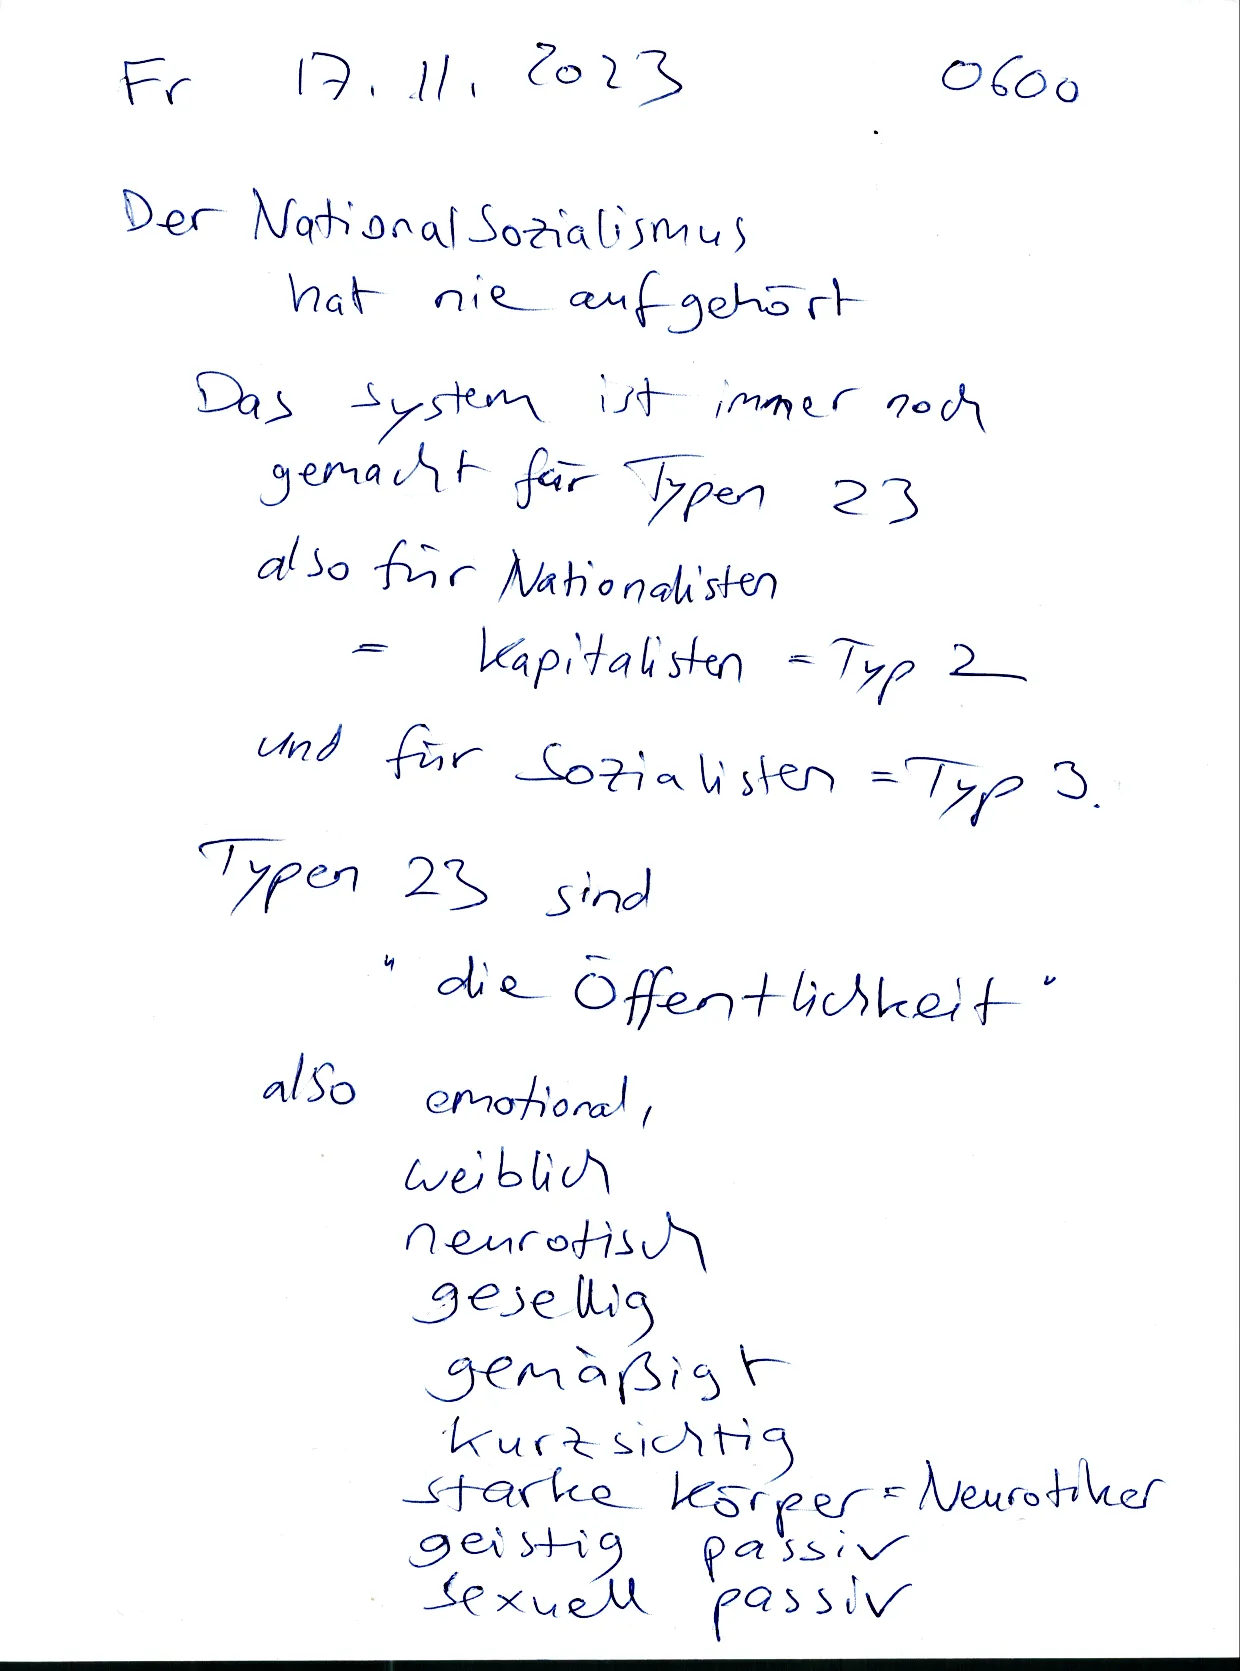 Fr 17.11.2023 0600
Der Nationalsozialismus
hat nie aufgehört
Das System ist immer noch
gemacht für Typen 23
also für Nationalisten
= Kapitalisten = Typ 2
und für Sozialisten = Typ 3.
Typen 23 sind
"die Öffentlichkeit"
also emotional,
weiblich
neurotisch
gesellig
gemäßigt
kurzsichtig
starke Körper = Neurotiker
geistig passiv
sexuell passiv